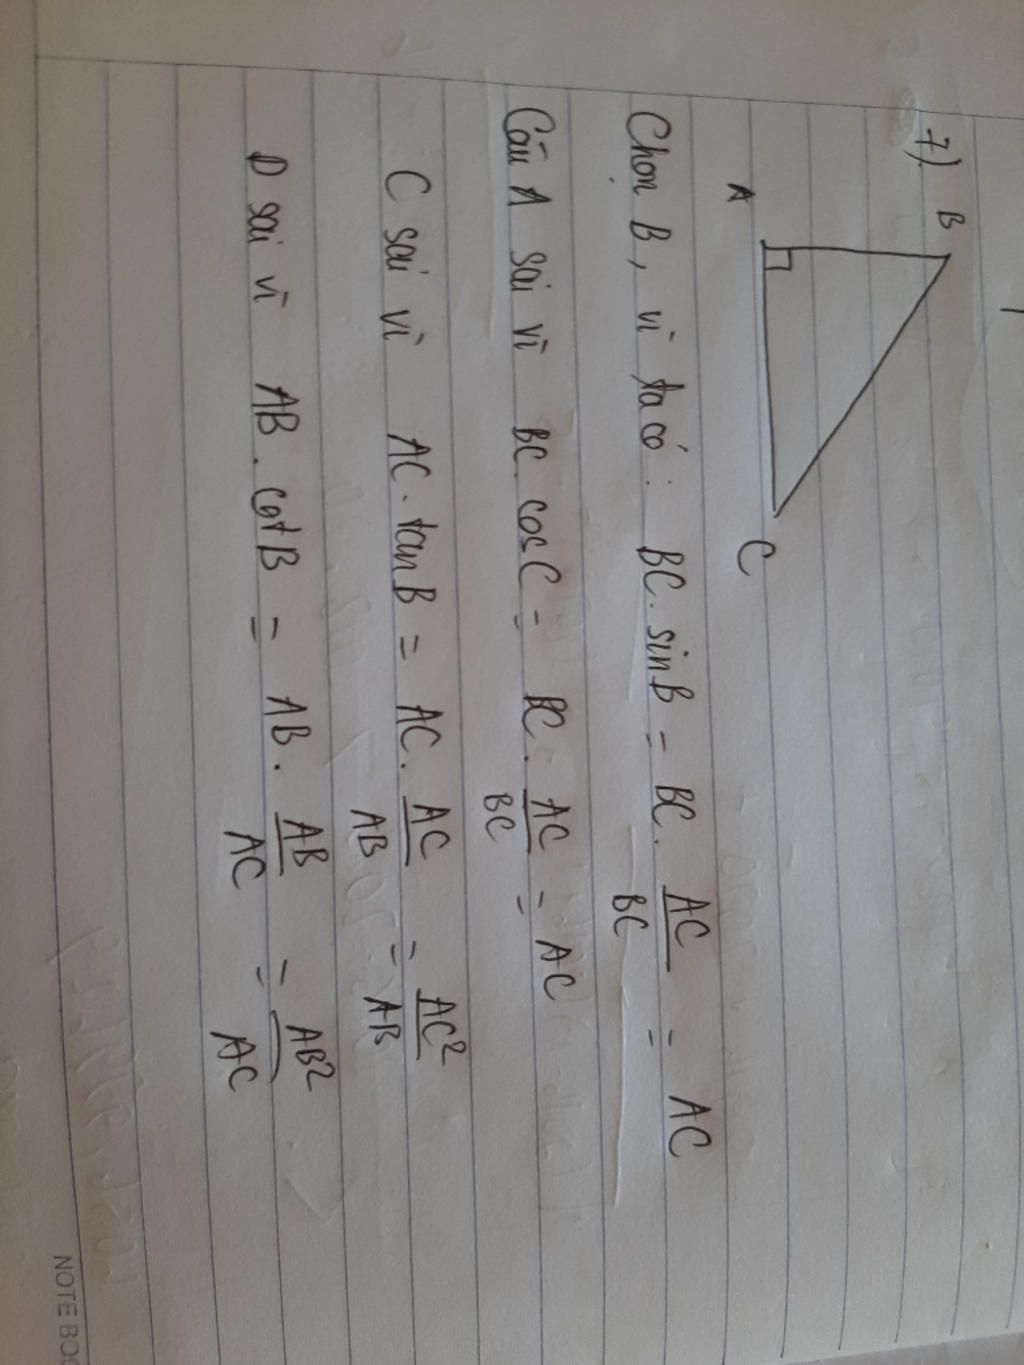 7)
B
A
C
Chọn B, vì ta có: BC. sinB = BC. AC/BC = AC
Câu A sai vì BC. cosC = BC. AC/BC = AC
C sai vì AC. tanB = AC. AC/AB = AC²/AB
D sai vì AB. cotB = AB. AB/AC = AB²/AC